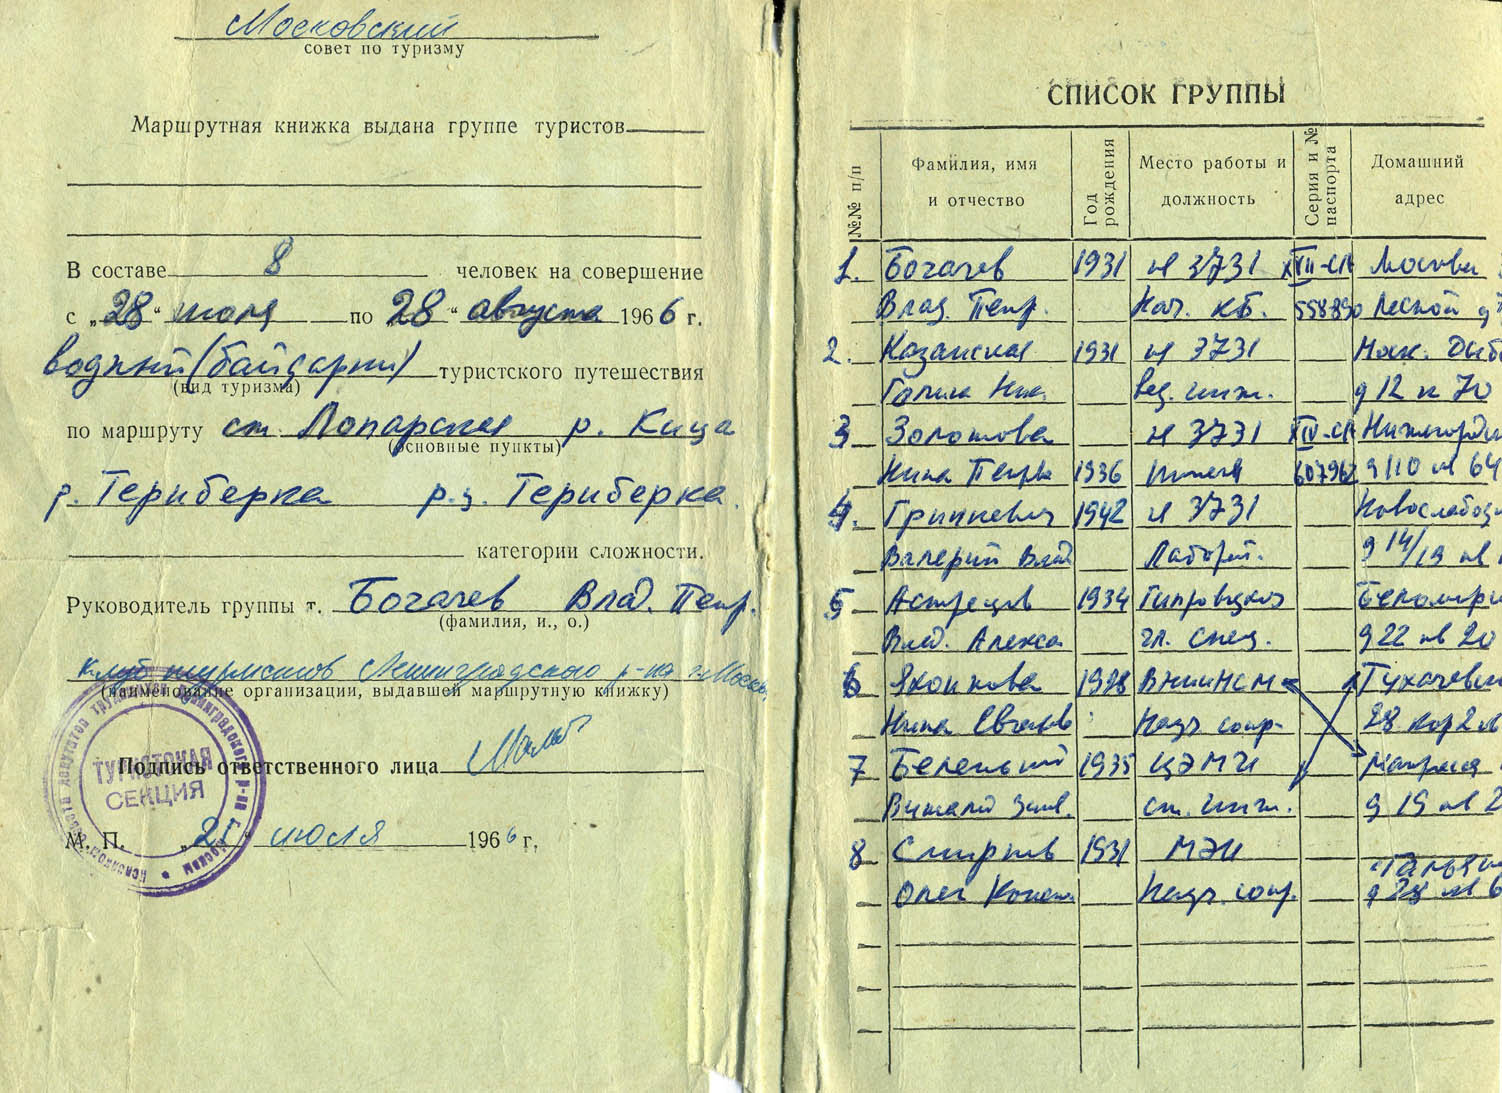 Московский
совет по туризму
Маршрутная книжка выдана группе туристов
В составе 8 человек на совершение
с „28“ июля по 28 “ августа 1966 г.
водный (байдарки) туристского путешествия
(вид туризма)
по маршруту ст. Лопарская р. Кица
(основные пункты)
р. Териберка р.ц. Териберка
категории сложности.
Руководитель группы т. Богачев Влад. Петр.
(фамилия, и., о.)
клуб туристов Ленинградского р-на г. Москвы
(наименование организации, выдавшей маршрутную книжку)
Подпись ответственного лица
ТУРИСТСКАЯ
СЕКЦИЯ
М. П. „ июля 1966 г.
СПИСОК ГРУППЫ
№№ п/п Фамилия, имя и отчество Год рождения Место работы и должность Серия и № паспорта Домашний адрес
1. Богачев 1931 3731 Москва
Влад. Петр. Нач. КБ. 558890 Лесной
2. Казанская 1931 3731
Галина Ник. вед. инж. д 12 к 70
3 Золотова 3731 XIV-СЮ
Нина Петр 1936 607962 д 110 кв 64
4. Гринкевич 1942 3731 Новослобод
Валерий Влад Лаборат. д 14/19 кв
5 Астрецов 1934 Беломор
Влад. Алекса гл. спец. д 22 кв 20
6 Яконкова 1928 ВНИИНСМ Тухачевск
Нина Научн. сотр. 28 кор 2
7 Беленький 1935 ЦЭМИ
Виталий ст. инж. д 19 кв 2
8 Смирнов 1931 МЭИ
Олег Научн. сотр. д 28 кв 6